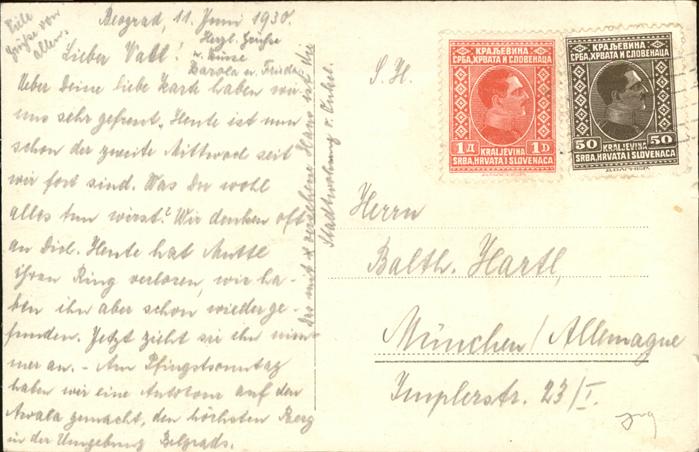 Beograd, 11. Juni 1930.
Viele
Grüße von
allen.
Lieber Vatl!
Herzl. Grüße
u. Küsse
Karola u. Friedl
Ueber Deine liebe Karte haben wir
uns sehr gefreut. Heute ist nun
schon der zweite Mittwoch seit
wir fort sind. Was Du wohl
alles tun wirst? Wir denken oft
an Dich. Heute hat Muttl
ihren Ring verloren, wir ha-
ben ihn aber schon wiederge-
funden. Jetzt zieht sie ihn nim-
mer an. - Am Pfingstsonntag
haben wir eine Autotour auf den
Awala gemacht, den höchsten Berg
in der Umgebung Belgrads.
Das mit x versehene Haus ist die
Stadtwohnung v. Onkel.
S. H.
КРАЉЕВИНА
СРБА, ХРВАТА И СЛОВЕНАЦА
1 Д 1 D
KRALJEVINA
SRBA, HRVATA I SLOVENACA
КРАЉЕВИНА
СРБА, ХРВАТА И СЛОВЕНАЦА
50 50
KRALJEVINA
SRBA, HRVATA I SLOVENACA
Herrn
Balth. Hartl,
München / Allemagne
Implerstr. 23/I.